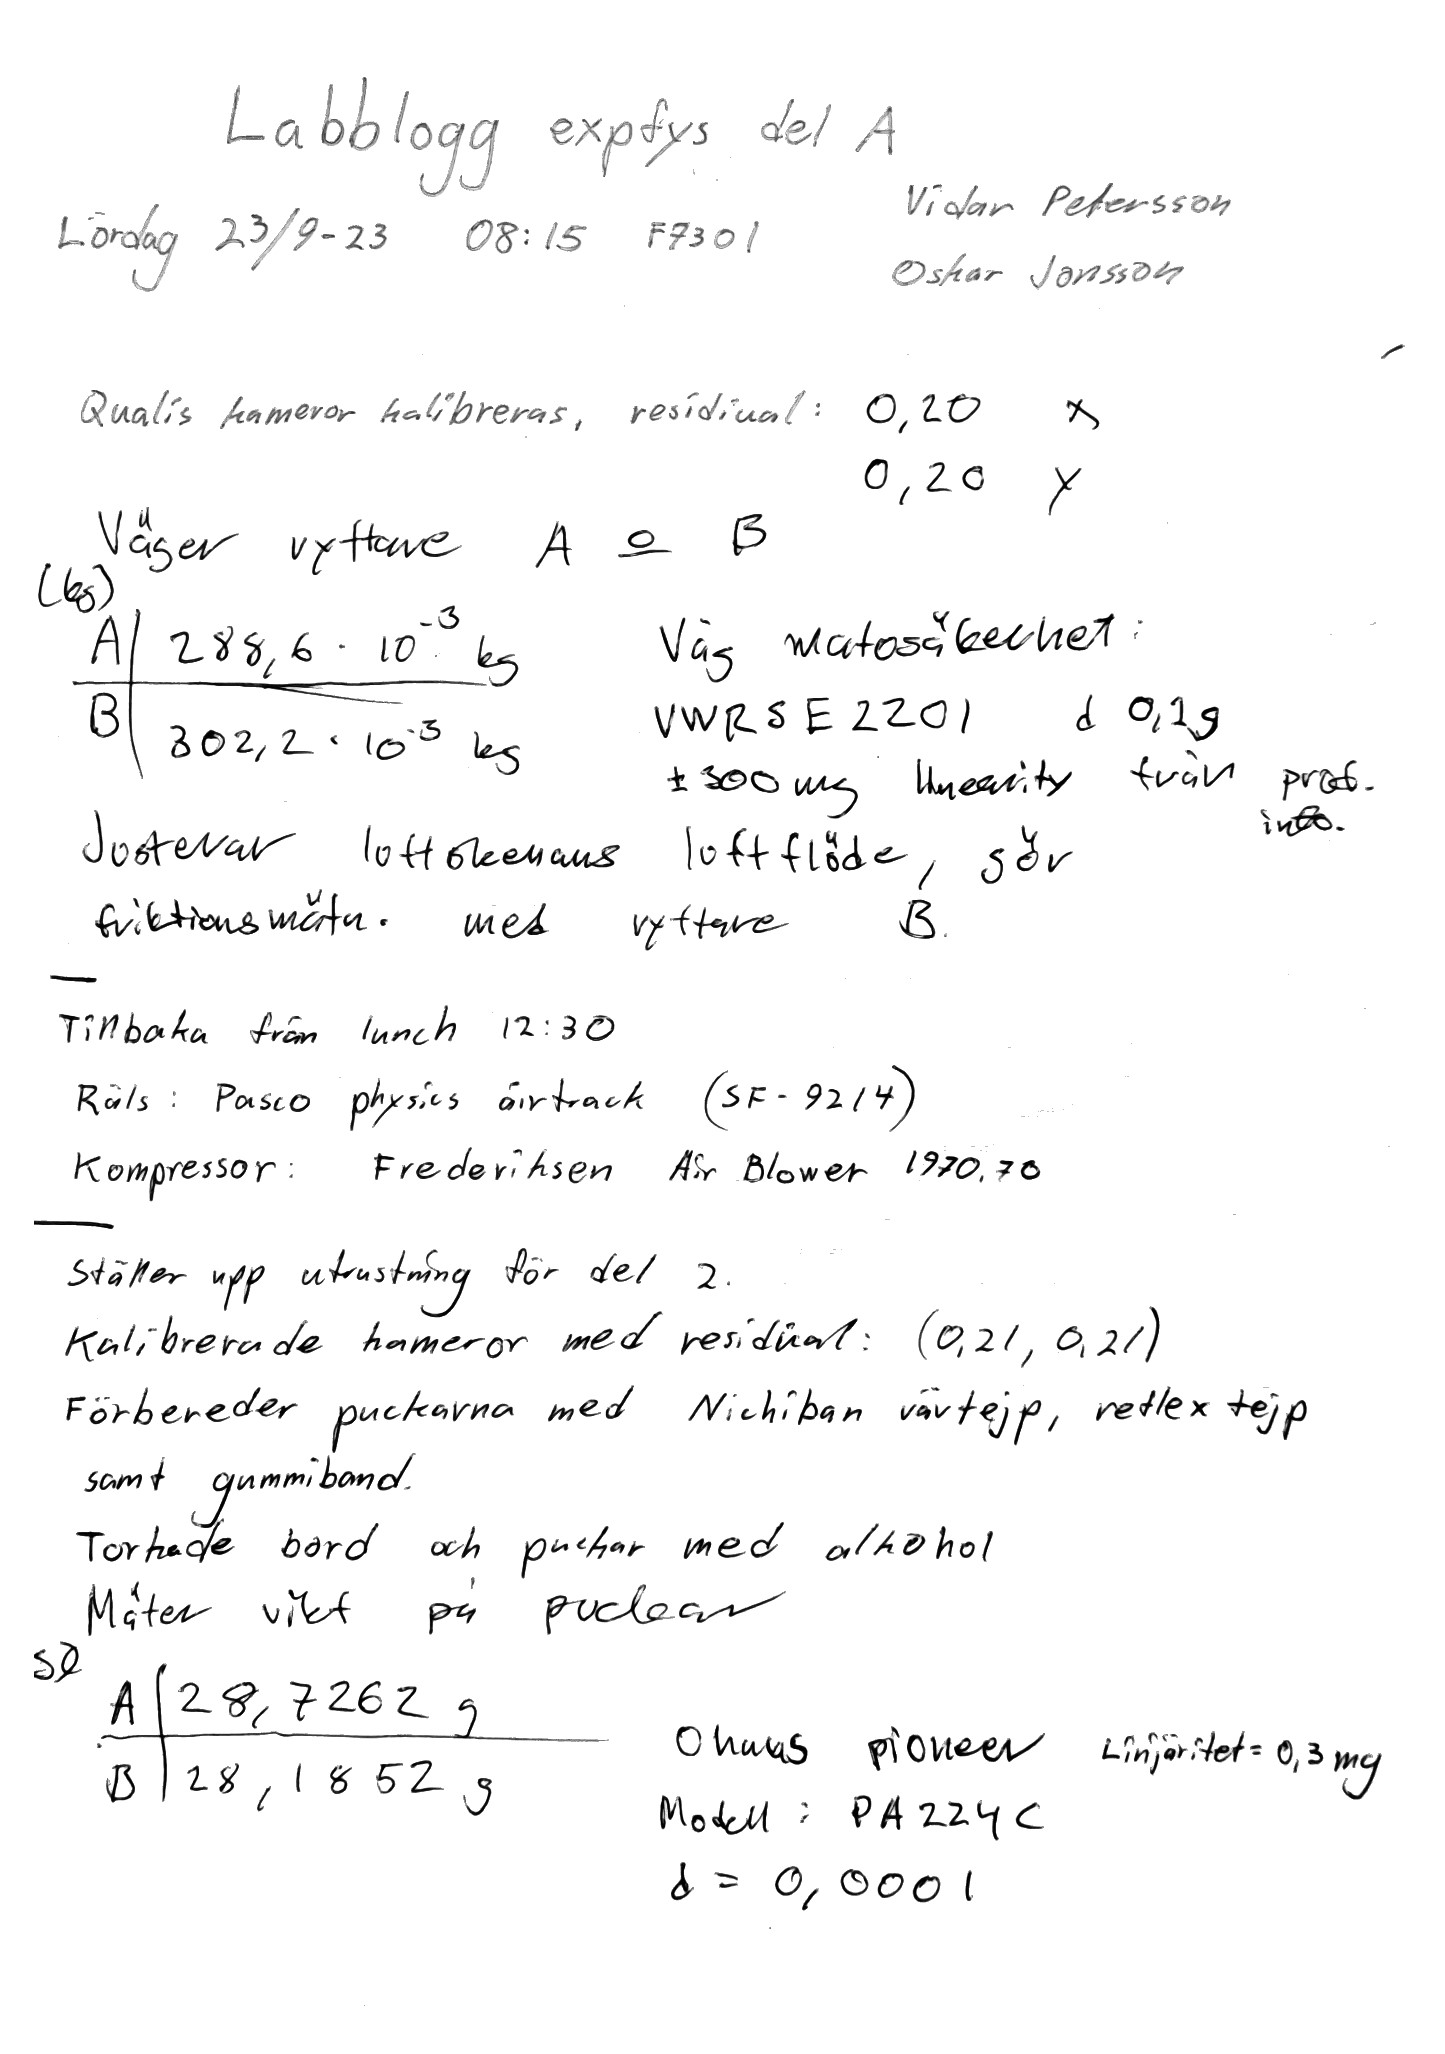 Labblogg expfys del A
Vidar Petersson
Lördag 23/9-23 08:15 F7301
Oskar Jonsson
Qualis kameror kalibreras, residiual: 0,20 x
0,20 y
Väger ryttare A o B
(kg)
A 288,6 · 10⁻³ kg
B 302,2 · 10⁻³ kg
Våg mätosäkerhet:
VWR SE2201 d 0,1g
± 300 mg linearity från prod.
info.
Justerar luftskenans luftflöde, gör
friktionsmätn. med ryttare B.
Tillbaka från lunch 12:30
Räls: Pasco physics airtrack (SF-9214)
Kompressor: Frederiksen Air Blower 1970.70
Ställer upp utrustning för del 2.
Kalibrerade kameror med residual: (0,21, 0,21)
Förbereder puckarna med Nichiban vävtejp, reflex tejp
samt gummiband.
Torkade bord och puckar med alkohol
Mäter vikt på puckar
A 28,7262 g
B 28,1852 g
Ohaus pioneer Linjäritet = 0,3 mg
Modell: PA224C
d = 0,0001